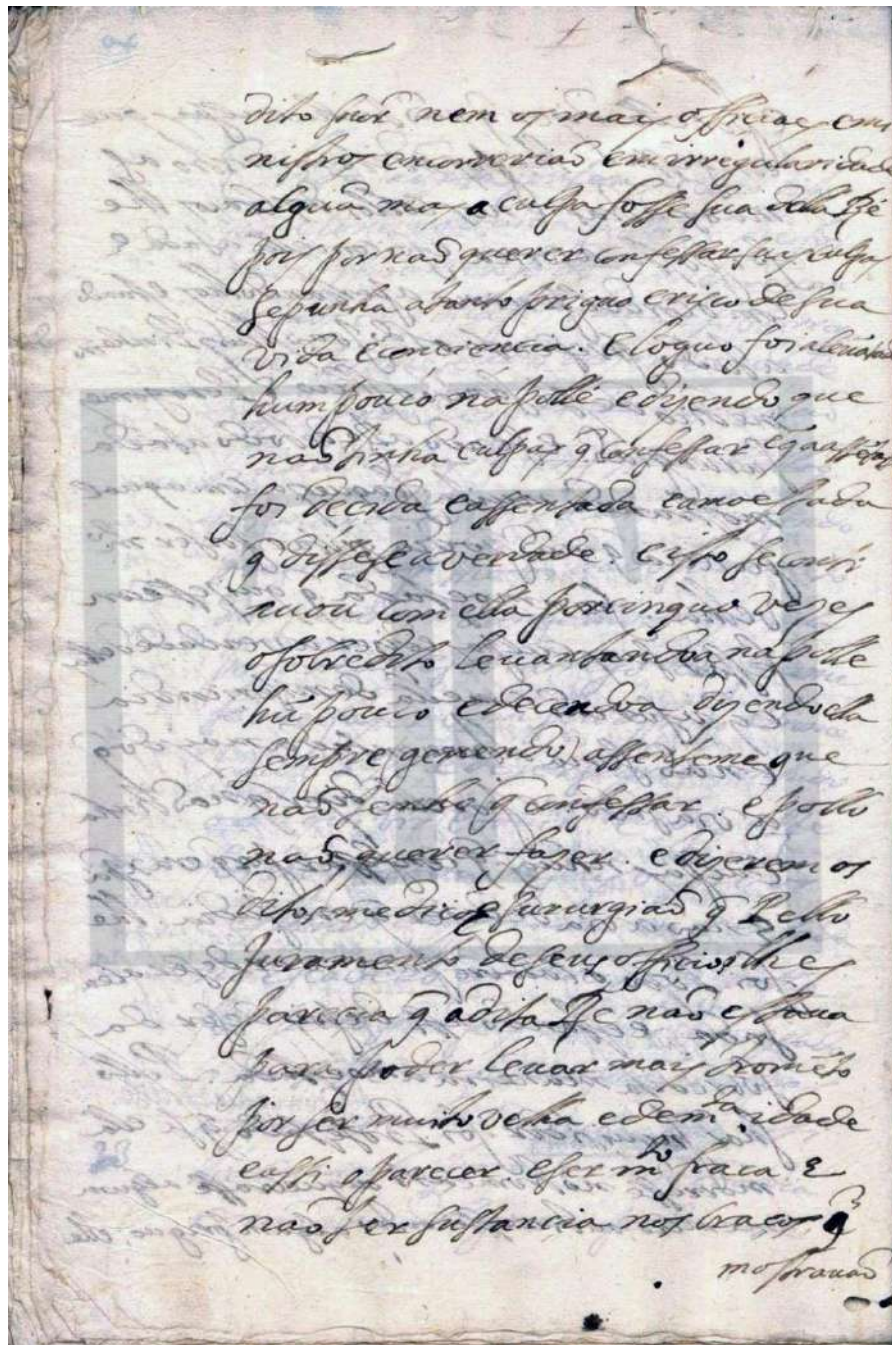 dito snor nem os mais officiaes e mi
nistros encorrerião em irregularidade
alguã mas a culpa fosse sua della Ré
pois por não querer confessar suas culpas
se punha a tanto priguo e risco de sua
vida e conciencia. E loguo foi aleuãtada
hum pouco na pollé e dizendo que
não tinha culpas q̃ confessar e q̃ a assẽtasẽ
foi decida e assentada e amoestada
q̃ dissese a verdade. e isto se conti
nuou com ella por cinquo vezes
o sobredito leuantandoa na polle
hũ pouco e decendoa dizendo ella
sempre gemendo, assenteme que
não tenho q̃ confessar. e pollo
não querer fazer. e dizerem os
ditos medico e sururgião q̃ Pello
Juramento de seus officios lhes
parecia q̃ a dita Ré não estaua
para poder leuar mais tromẽto
por ser muito velha e de m.ta idade
e assi o parecer e ser m.to fraca e
não ter sustancia nos braços q̃
mostrauão